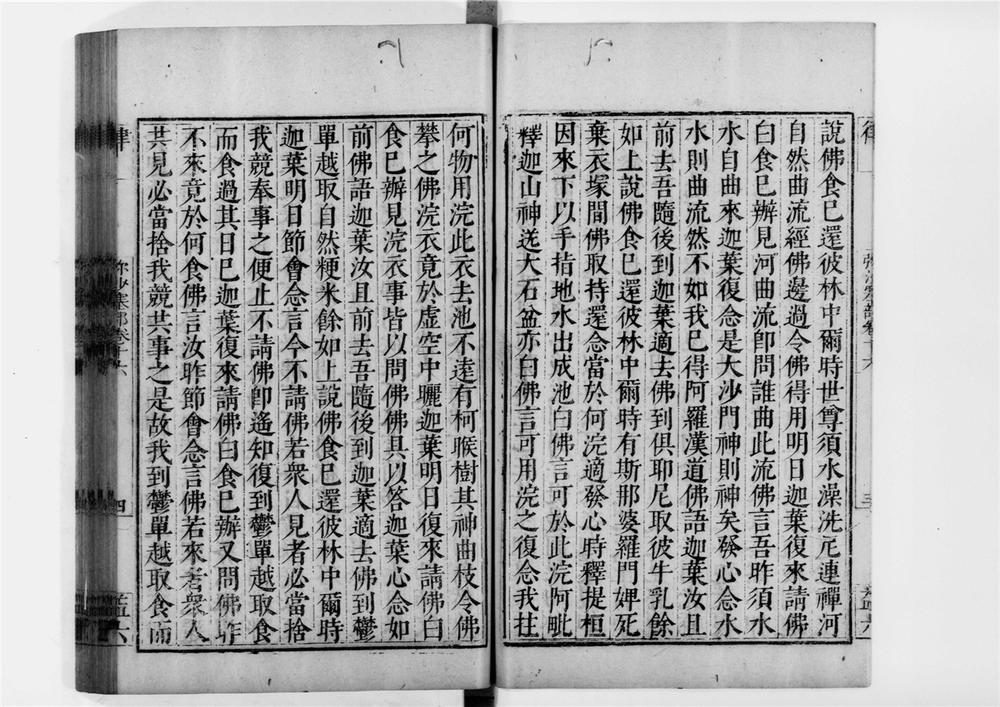 說佛食已還彼林中爾時世尊須水澡洗𡰱連禪河
自然曲流經佛邊過令佛得用明日迦葉復來請佛
曰食已辦見河曲流卽問誰曲此流佛言吾昨須水
水自曲來迦葉復念是大沙門神則神矣發心念水
水則曲流然不如我已得阿羅漢道佛語迦葉汝且
前去吾隨後到迦葉適去佛到俱耶尼取彼牛乳餘
如上說佛食已還彼林中爾時有斯那婆羅門婢死
棄衣塚間佛取持還念當於何浣適發心時釋提桓
因來下以手指地水出成池白佛言可於此浣阿毗
釋迦山神送大石盆亦白佛言可用浣之復念我拄
律
彌沙塞部卷十六
三
孟六
何物用浣此衣去池不遠有柯睺樹其神曲枝令佛
攀之佛浣衣竟於虛空中曬迦葉明日復來請佛白
食已辦見浣衣事皆以問佛佛具以答迦葉心念如
前佛語迦葉汝且前去吾隨後到迦葉適去佛到鬱
單越取自然粳米餘如上說佛食已還彼林中爾時
迦葉明日節會念言今不請佛若衆人見者必當捨
我競奉事之便止不請佛卽遙知復到鬱單越取食
而食過其日已迦葉復來請佛白食已辦又問佛昨
不來竟於何食佛言汝昨節會念言佛若來者衆人
共見必當捨我競共事之是故我到鬱單越取食而
律
弥沙塞部卷十六
四
孟六